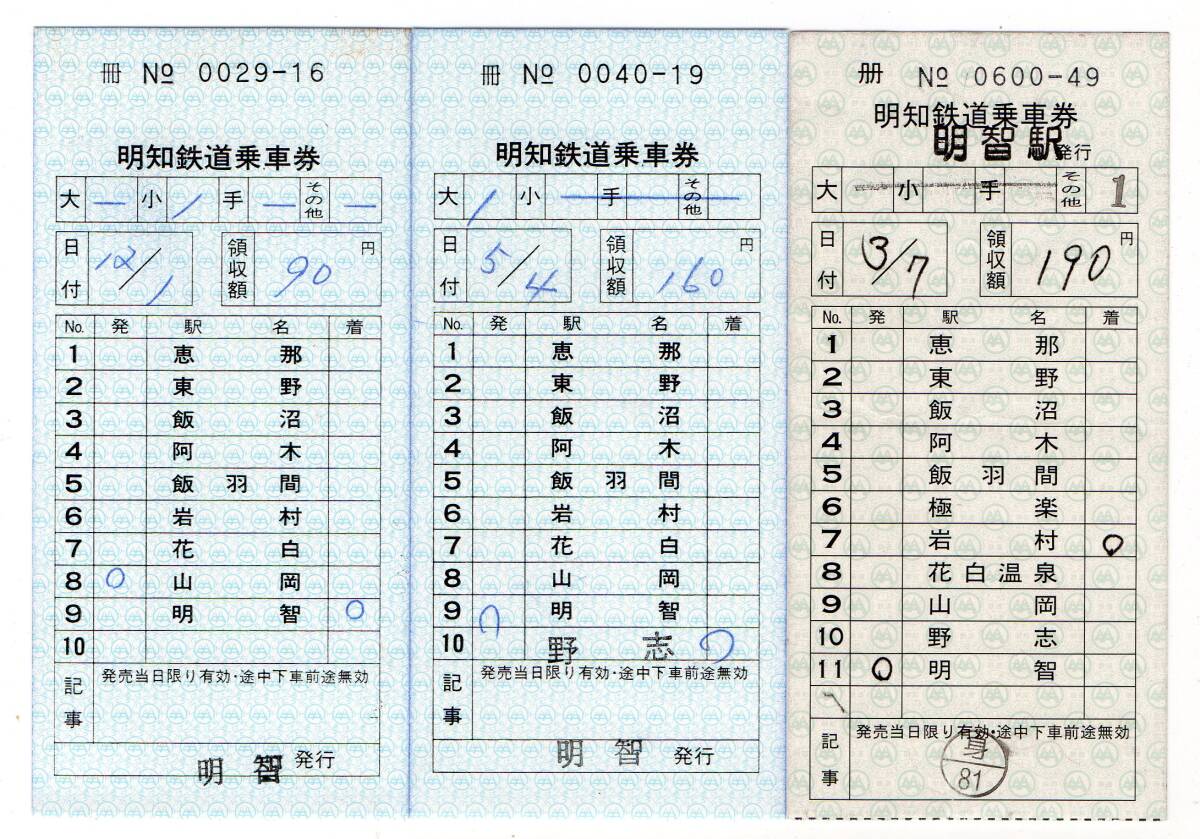 冊 № 0029-16
明知鉄道乗車券
大 ー 小 / 手 ー その他 ー
日付 12/1 領収額 90 円
No. 発 駅名 着
1 恵那
2 東野
3 飯沼
4 阿木
5 飯羽間
6 岩村
7 花白
8 ○ 山岡
9 明智 ○
10
記事 発売当日限り有効・途中下車前途無効
明智 発行
冊 № 0040-19
明知鉄道乗車券
大 / 小 手 その他
日付 5/4 領収額 160 円
No. 発 駅名 着
1 恵那
2 東野
3 飯沼
4 阿木
5 飯羽間
6 岩村
7 花白
8 山岡
9 明智
10 野志
記事 発売当日限り有効・途中下車前途無効
明智 発行
冊 № 0600-49
明知鉄道乗車券
明智駅 発行
大 小 手 その他 1
日付 3/7 領収額 190 円
No. 発 駅名 着
1 恵那
2 東野
3 飯沼
4 阿木
5 飯羽間
6 極楽
7 岩村 ○
8 花白温泉
9 山岡
10 野志
11 ○ 明智
記事 発売当日限り有効・途中下車前途無効
81